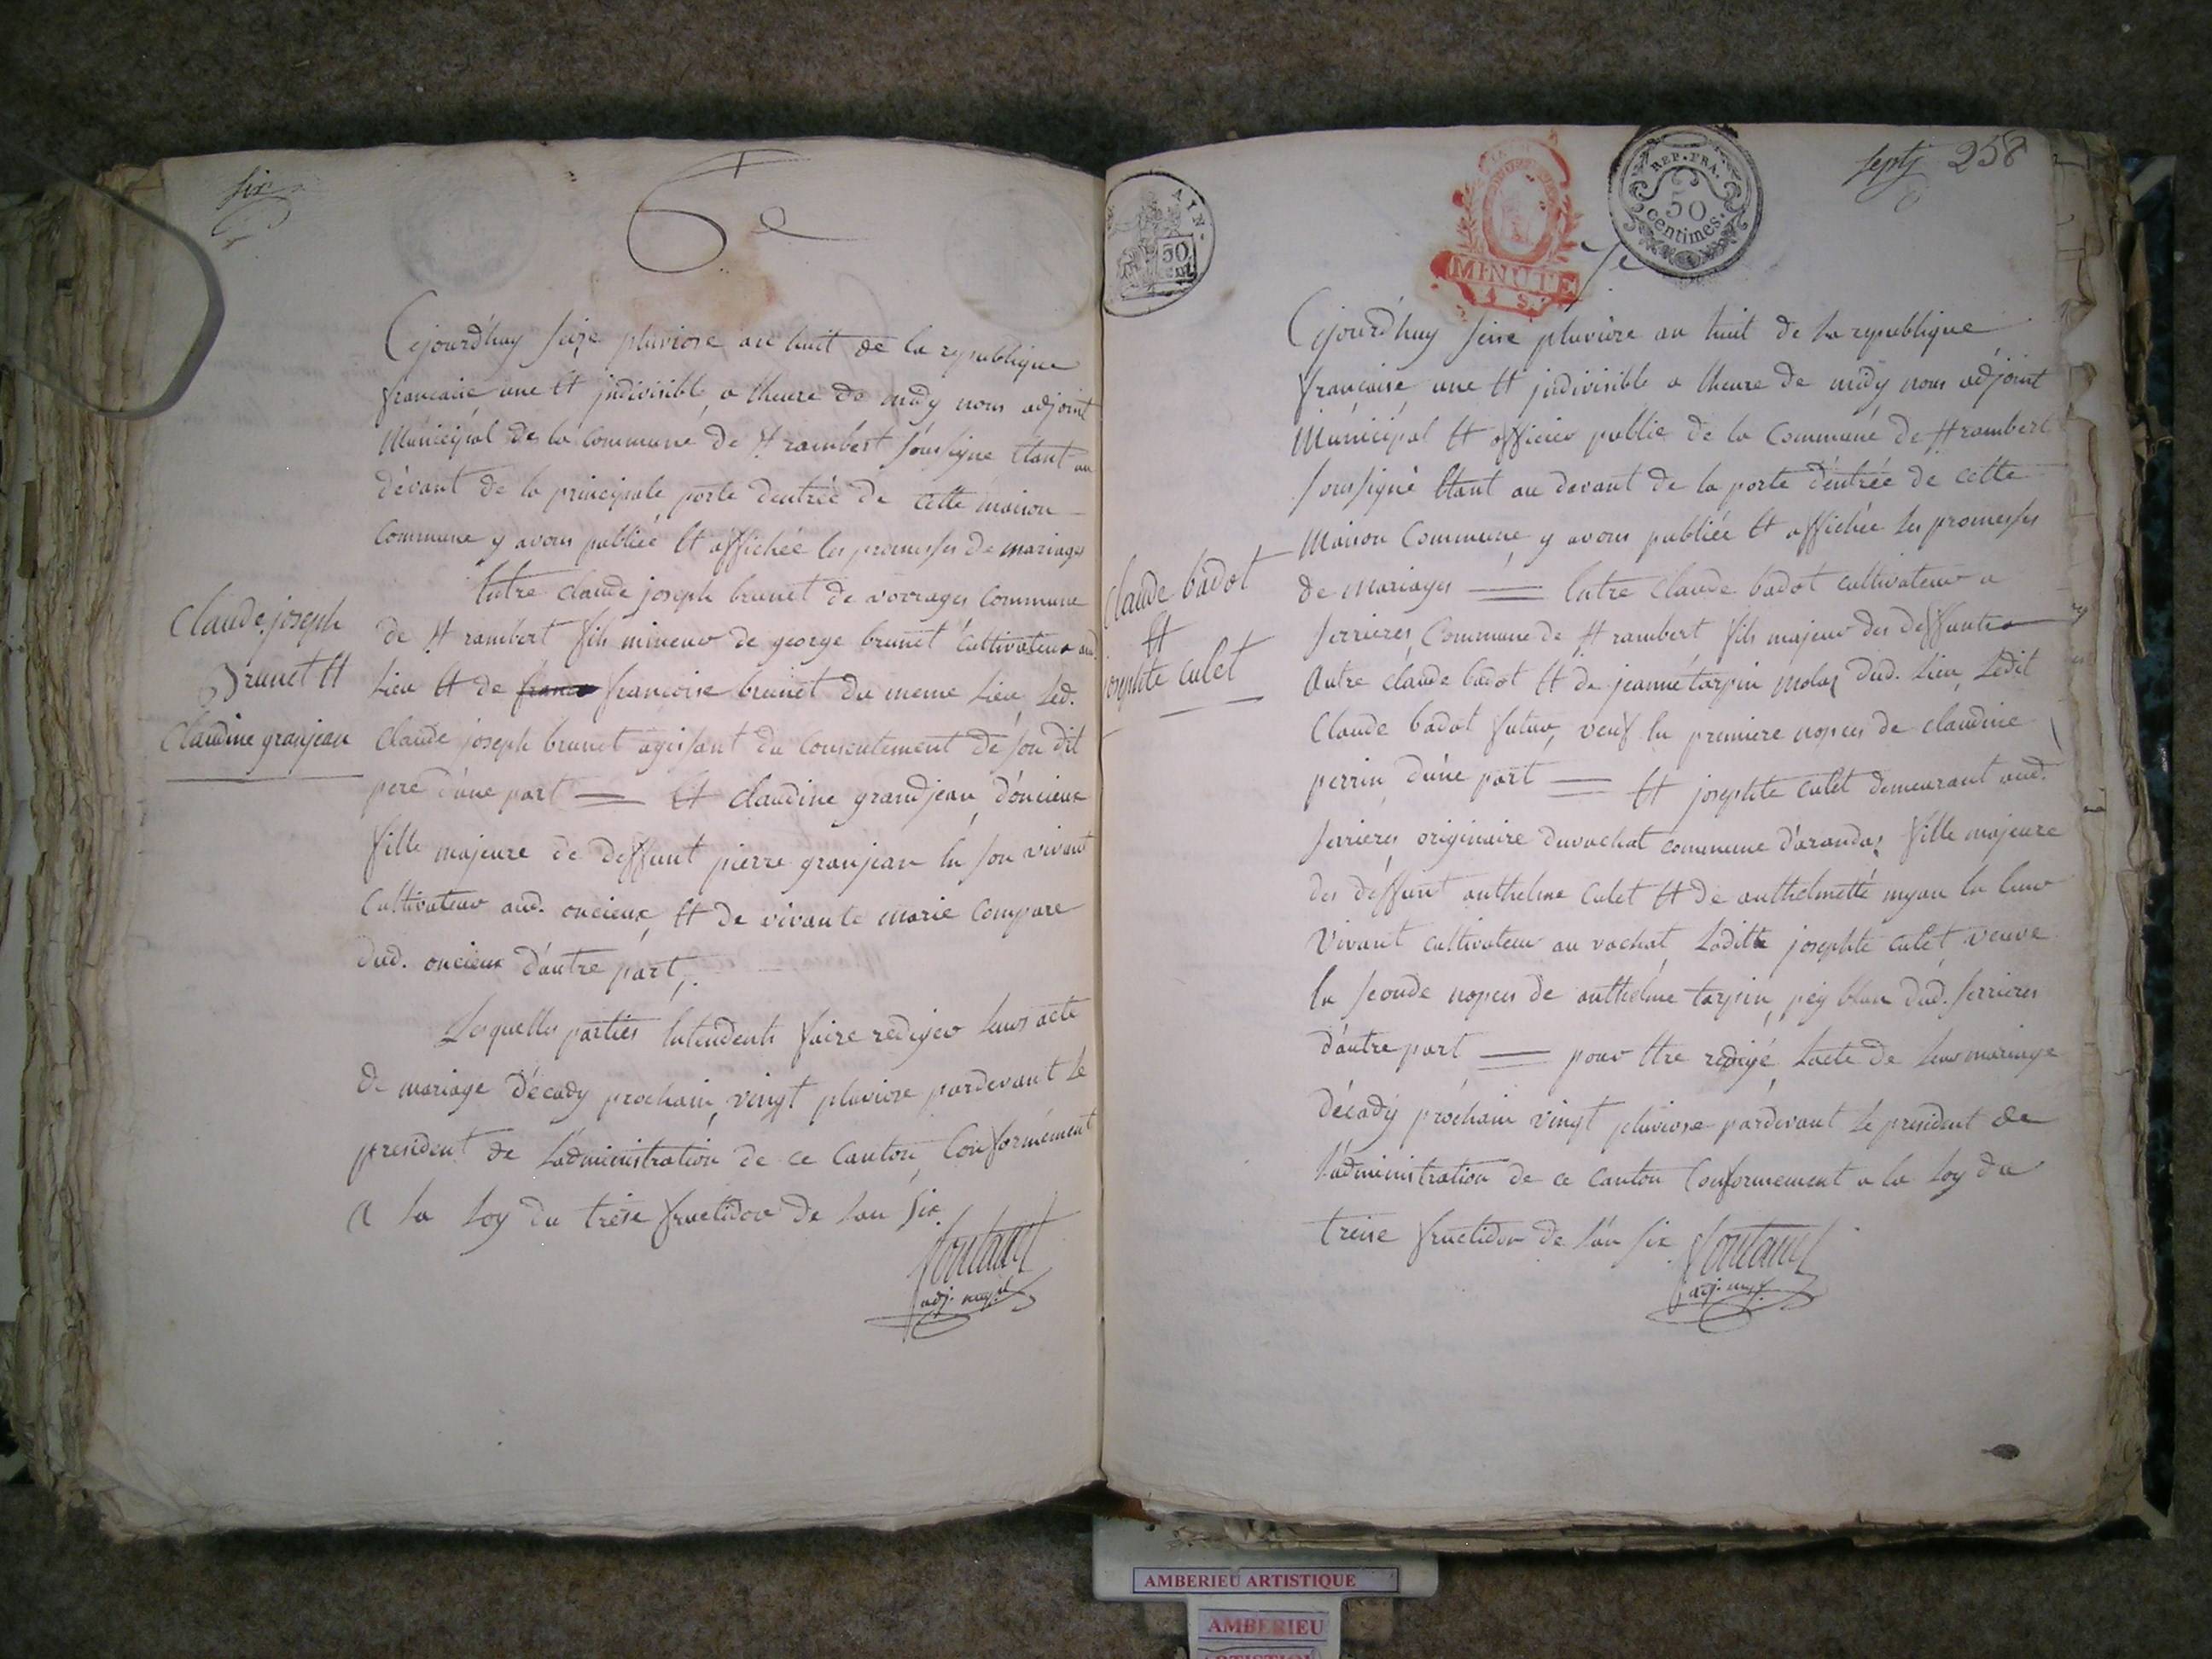 six
6e
Cejourd'huy seize pluviose an huit de la republique
francaise une et jndivisible a lheure de midy nous adjoint
Municipal de la commune de st rambert soussigne etant au
dévant de la principale porte dentrée de cette maison
commune y avons publiée et affichée les promesses de mariages
Entre claude joseph brunet de vorages commune
de st rambert fils mineur de george brunet cultivateur aud.
Lieu et de françoise brunet du meme Lieu Led.
claude joseph brunet agissant du consentement de son dit
pere d'une part = et claudine grandjean d'oncieux
fille majeure de deffunt pierre granjean en son vivant
cultivateur aud. oncieux et de vivante marie compare
dud. oncieux d'autre part,
Lesquelles parties Entendents faire rediger leurs acte
de mariage décady prochain vingt pluviose pardevant le
president de L'administration de ce canton Conformément
a la Loy du trese fructidor de Lan six
fontanel
adj. mup.l
Claude joseph
Brunet et
Claudine granjean
septj 258
AYN.
50
cent
MINUTE
REP. FRA.
50
centimes.
7e
Cejourd'huy seise pluviose an huit de la republique
française une et jndivisible a lheure de midy nous adjoint
Municipal et officier public de la commune de st rambert
soussigné Etant au devant de la porte d'entrée de cette
Maison Commune y avons publiée et affichée les promesses
de mariages = Entre claude badot cultivateur a
serrieres Commune de st rambert fils majeur des deffunts
autre claude badot et de jeanne tarpin molaz dud. Lieu Ledit
Claude badot futur, veuf En premiere nopces de claudine
perrin d'une part = et josephte culet demeurant aud.
serrieres originaire duvachat commune d'arandas fille majeure
des deffunt anthelme culet et de anthelmette myan En leur
vivant cultivateur au vachat Laditte josephte culet veuve
En seconde nopces de anthelme tarpin pey blan dud. serrieres
d'autre part = pour être redigé Lacte de leur mariage
décady prochain vingt pluviose pardevant le president de
L'administration de ce canton Conformement a la Loy du
treise fructidor de L'an six
fontanel
adj. mup.
claude badot
et
josephte culet
AMBERIEU ARTISTIQUE
AMBERIEU